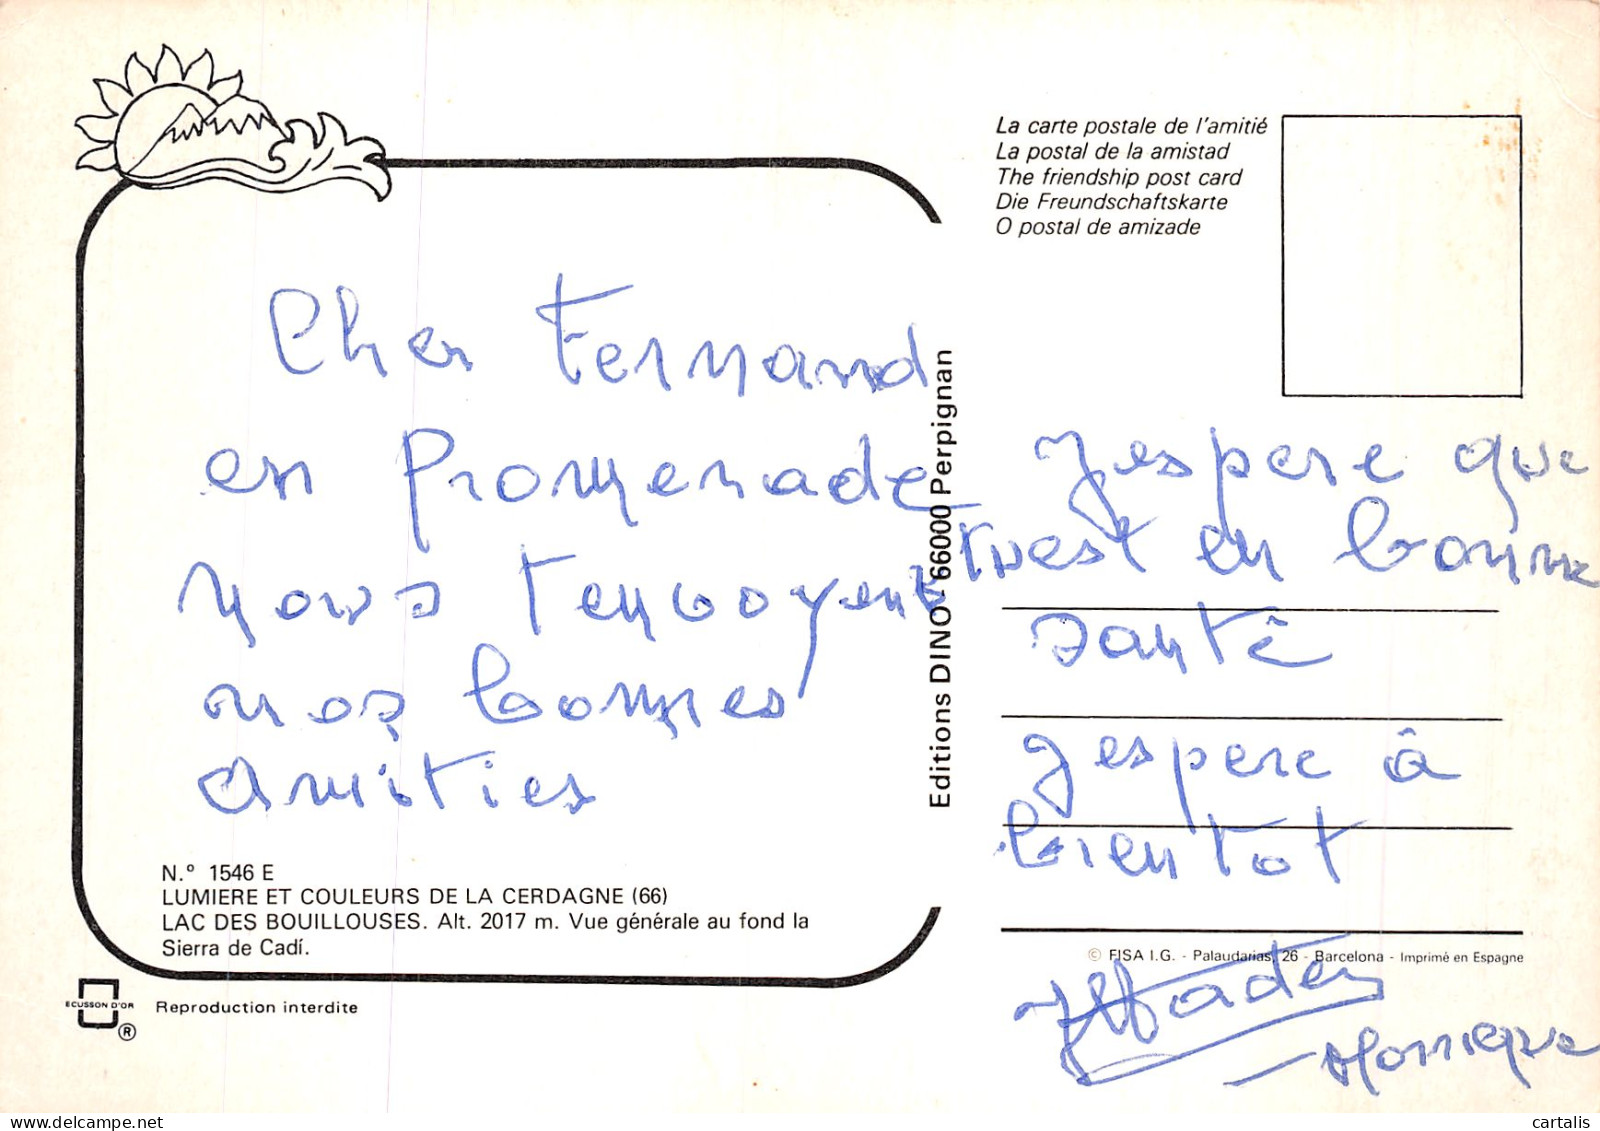 La carte postale de l'amitié
La postal de la amistad
The friendship post card
Die Freundschaftskarte
O postal de amizade
Cher Fernand
en promenade
nous tenvoyens
nos bonnes
amitiés
Editions DINO - 66000 Perpignan
J espere que
tu est en bonne
santé
J espere à
bientot
Monique
N.º 1546 E
LUMIERE ET COULEURS DE LA CERDAGNE (66)
LAC DES BOUILLOUSES. Alt. 2017 m. Vue générale au fond la
Sierra de Cadí.
© FISA I.G. - Palaudarias, 26 - Barcelona - Imprimé en Espagne
ECUSSON D'OR
®
Reproduction interdite
cartalis